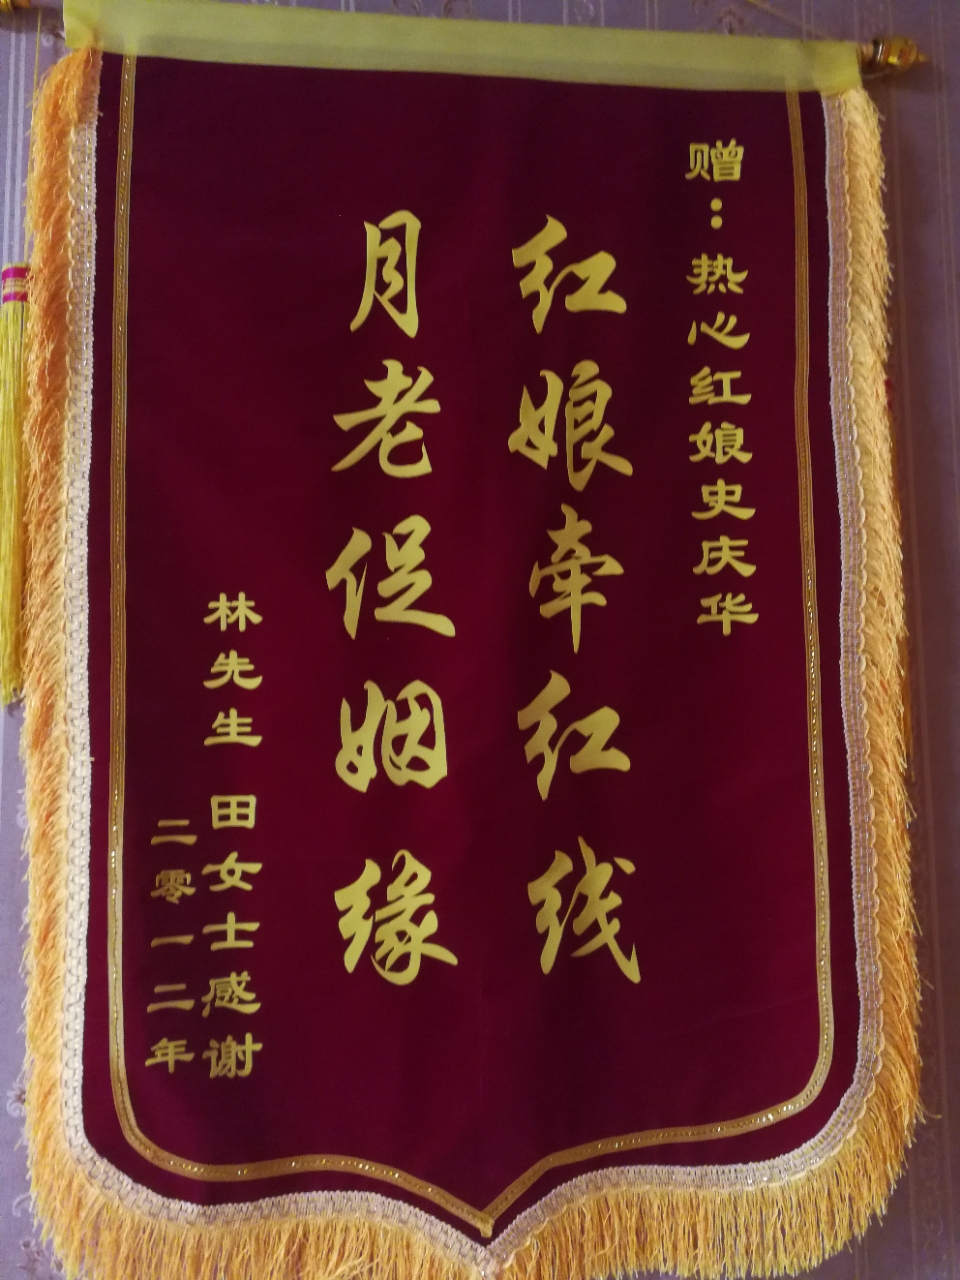 赠：热心红娘史庆华
红娘牵红线
月老促姻缘
林先生 田女士感谢
二零一二年